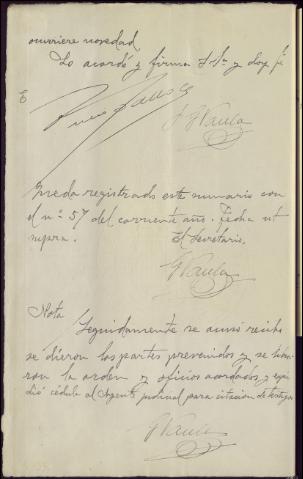 ocurriere novedad
Lo acordó y firma S. Sª y doy fé
E
J. Paula
Queda registrado este sumario con
el nº 57 del corriente año. Fecha ut
supra. El Secretario.
J. Paula
Nota
Seguidamente se acusó recibo
se dieron los partes prevenidos y se libra-
ron la orden y oficios acordados y expi-
dió cédula al Agente judicial para citación de testigos
J. Paula